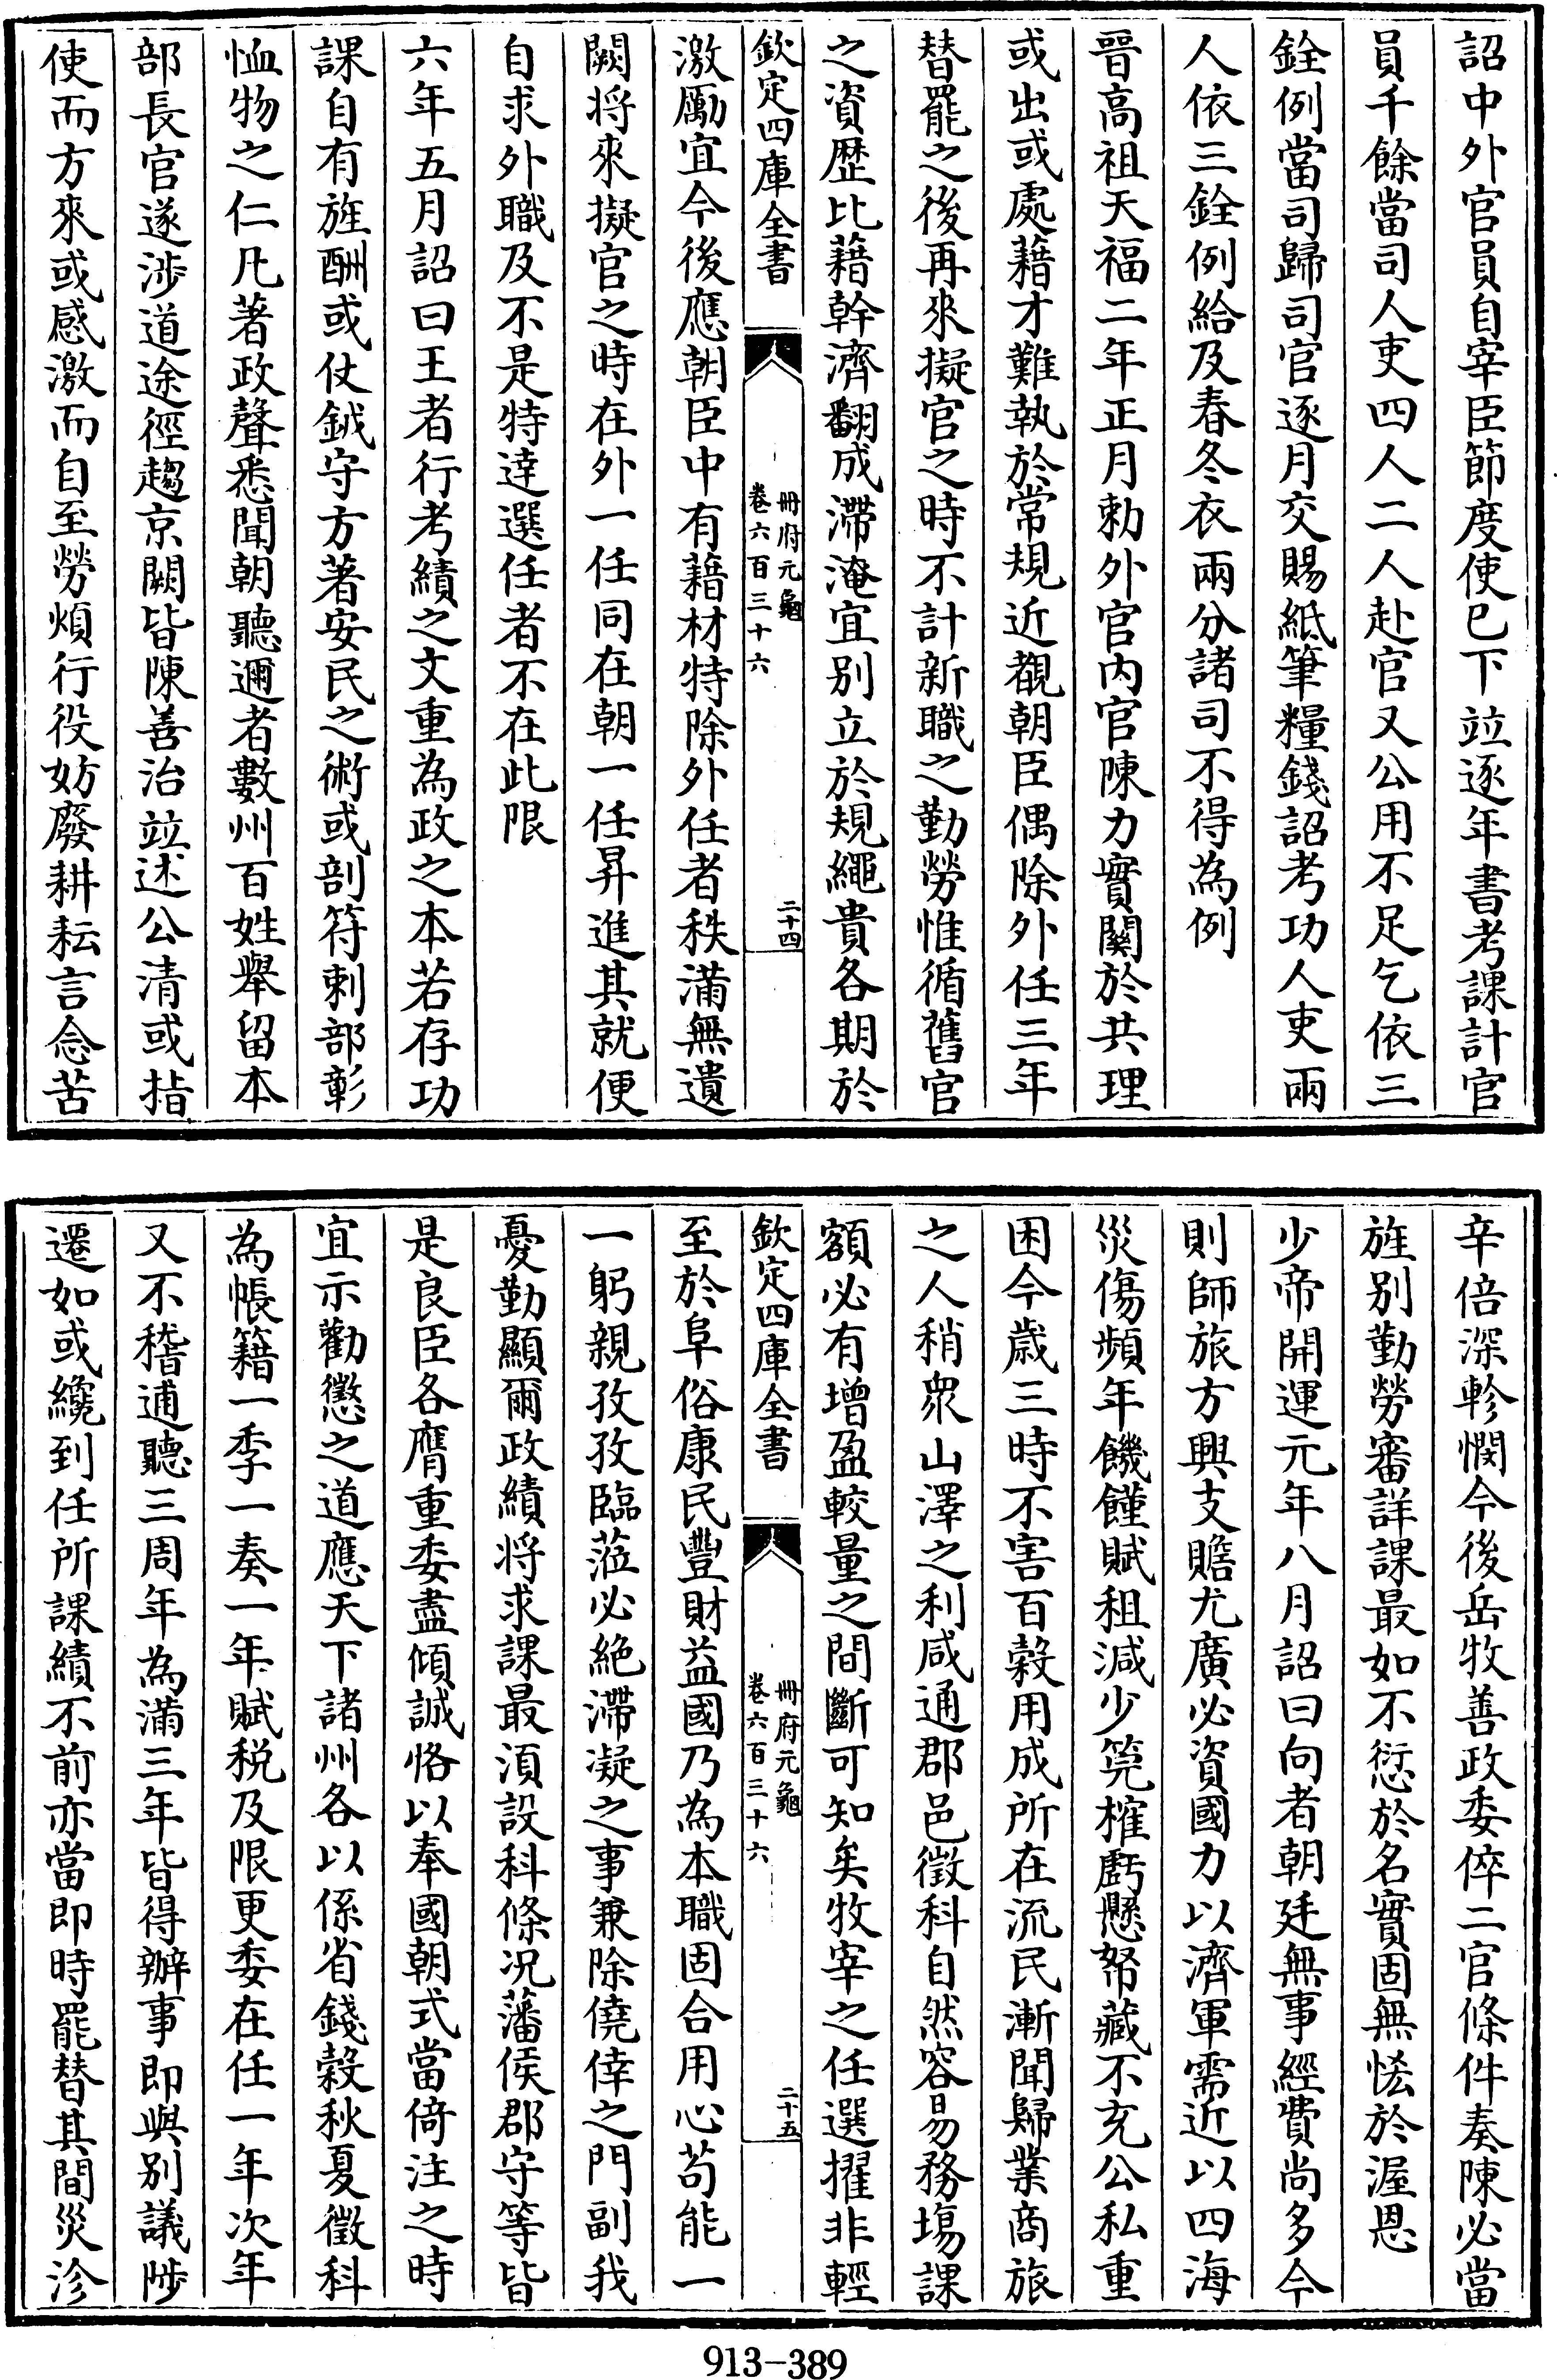 詔中外官員自宰臣節度使已下竝逐年書考課計官
員千餘當司人吏四人二人赴官又公用不足乞依三
銓例當司歸司官逐月交賜紙筆糧錢詔考功人吏兩
人依三銓例給及春冬衣兩分諸司不得為例
晉高祖天福二年正月勅外官内官陳力實關於共理
或出或處藉才難執於常規近覩朝臣偶除外任三年
替罷之後再來擬官之時不計新職之勤勞惟循舊官
之資歴比藉幹濟翻成滯淹宜別立於規繩貴各期於
欽定四庫全書
冊府元龜
卷六百三十六
二十四
激勵宜今後應朝臣中有藉材特除外任者秩滿無遺
闕将來擬官之時在外一任同在朝一任昇進其就便
自求外職及不是特達選任者不在此限
六年五月詔曰王者行考績之文重為政之本若存功
課自有旌酬或仗鉞守方著安民之術或剖符剌部彰
恤物之仁凡著政聲悉聞朝聽邇者數州百姓舉留本
部長官遂涉道途徑趨京闕皆陳善治竝述公清或指
使而方來或感激而自至勞煩行役妨廢耕耘言念苦
辛倍深軫憫今後岳牧善政委倅二官條件奏陳必當
旌别勤勞審詳課最如不愆於名實固無恡於渥恩
少帝開運元年八月詔曰向者朝廷無事經費尚多今
則師旅方興支贍尤廣必資國力以濟軍需近以四海
災傷頻年饑饉賦租減少筦榷虧懸帑藏不充公私重
困今歲三時不害百穀用成所在流民漸聞歸業商旅
之人稍衆山澤之利咸通郡邑徵科自然容易務塲課
額必有增盈較量之間斷可知矣牧宰之任選擢非輕
欽定四庫全書
冊府元龜
卷六百三十六
二十五
至於阜俗康民豐財益國乃為本職固合用心苟能一
一躬親孜孜臨蒞必絶滯凝之事兼除僥倖之門副我
憂勤顯爾政績将求課最湏設科條况藩侯郡守等皆
是良臣各膺重委盡傾誠恪以奉國朝式當倚注之時
宜示勸懲之道應天下諸州各以係省錢穀秋夏徵科
為帳籍一季一奏一年賦税及限更委在任一年次年
又不稽逋聽三周年為滿三年皆得辦事即與别議陟
遷如或纔到任所課績不前亦當即時罷替其間災沴
913-389